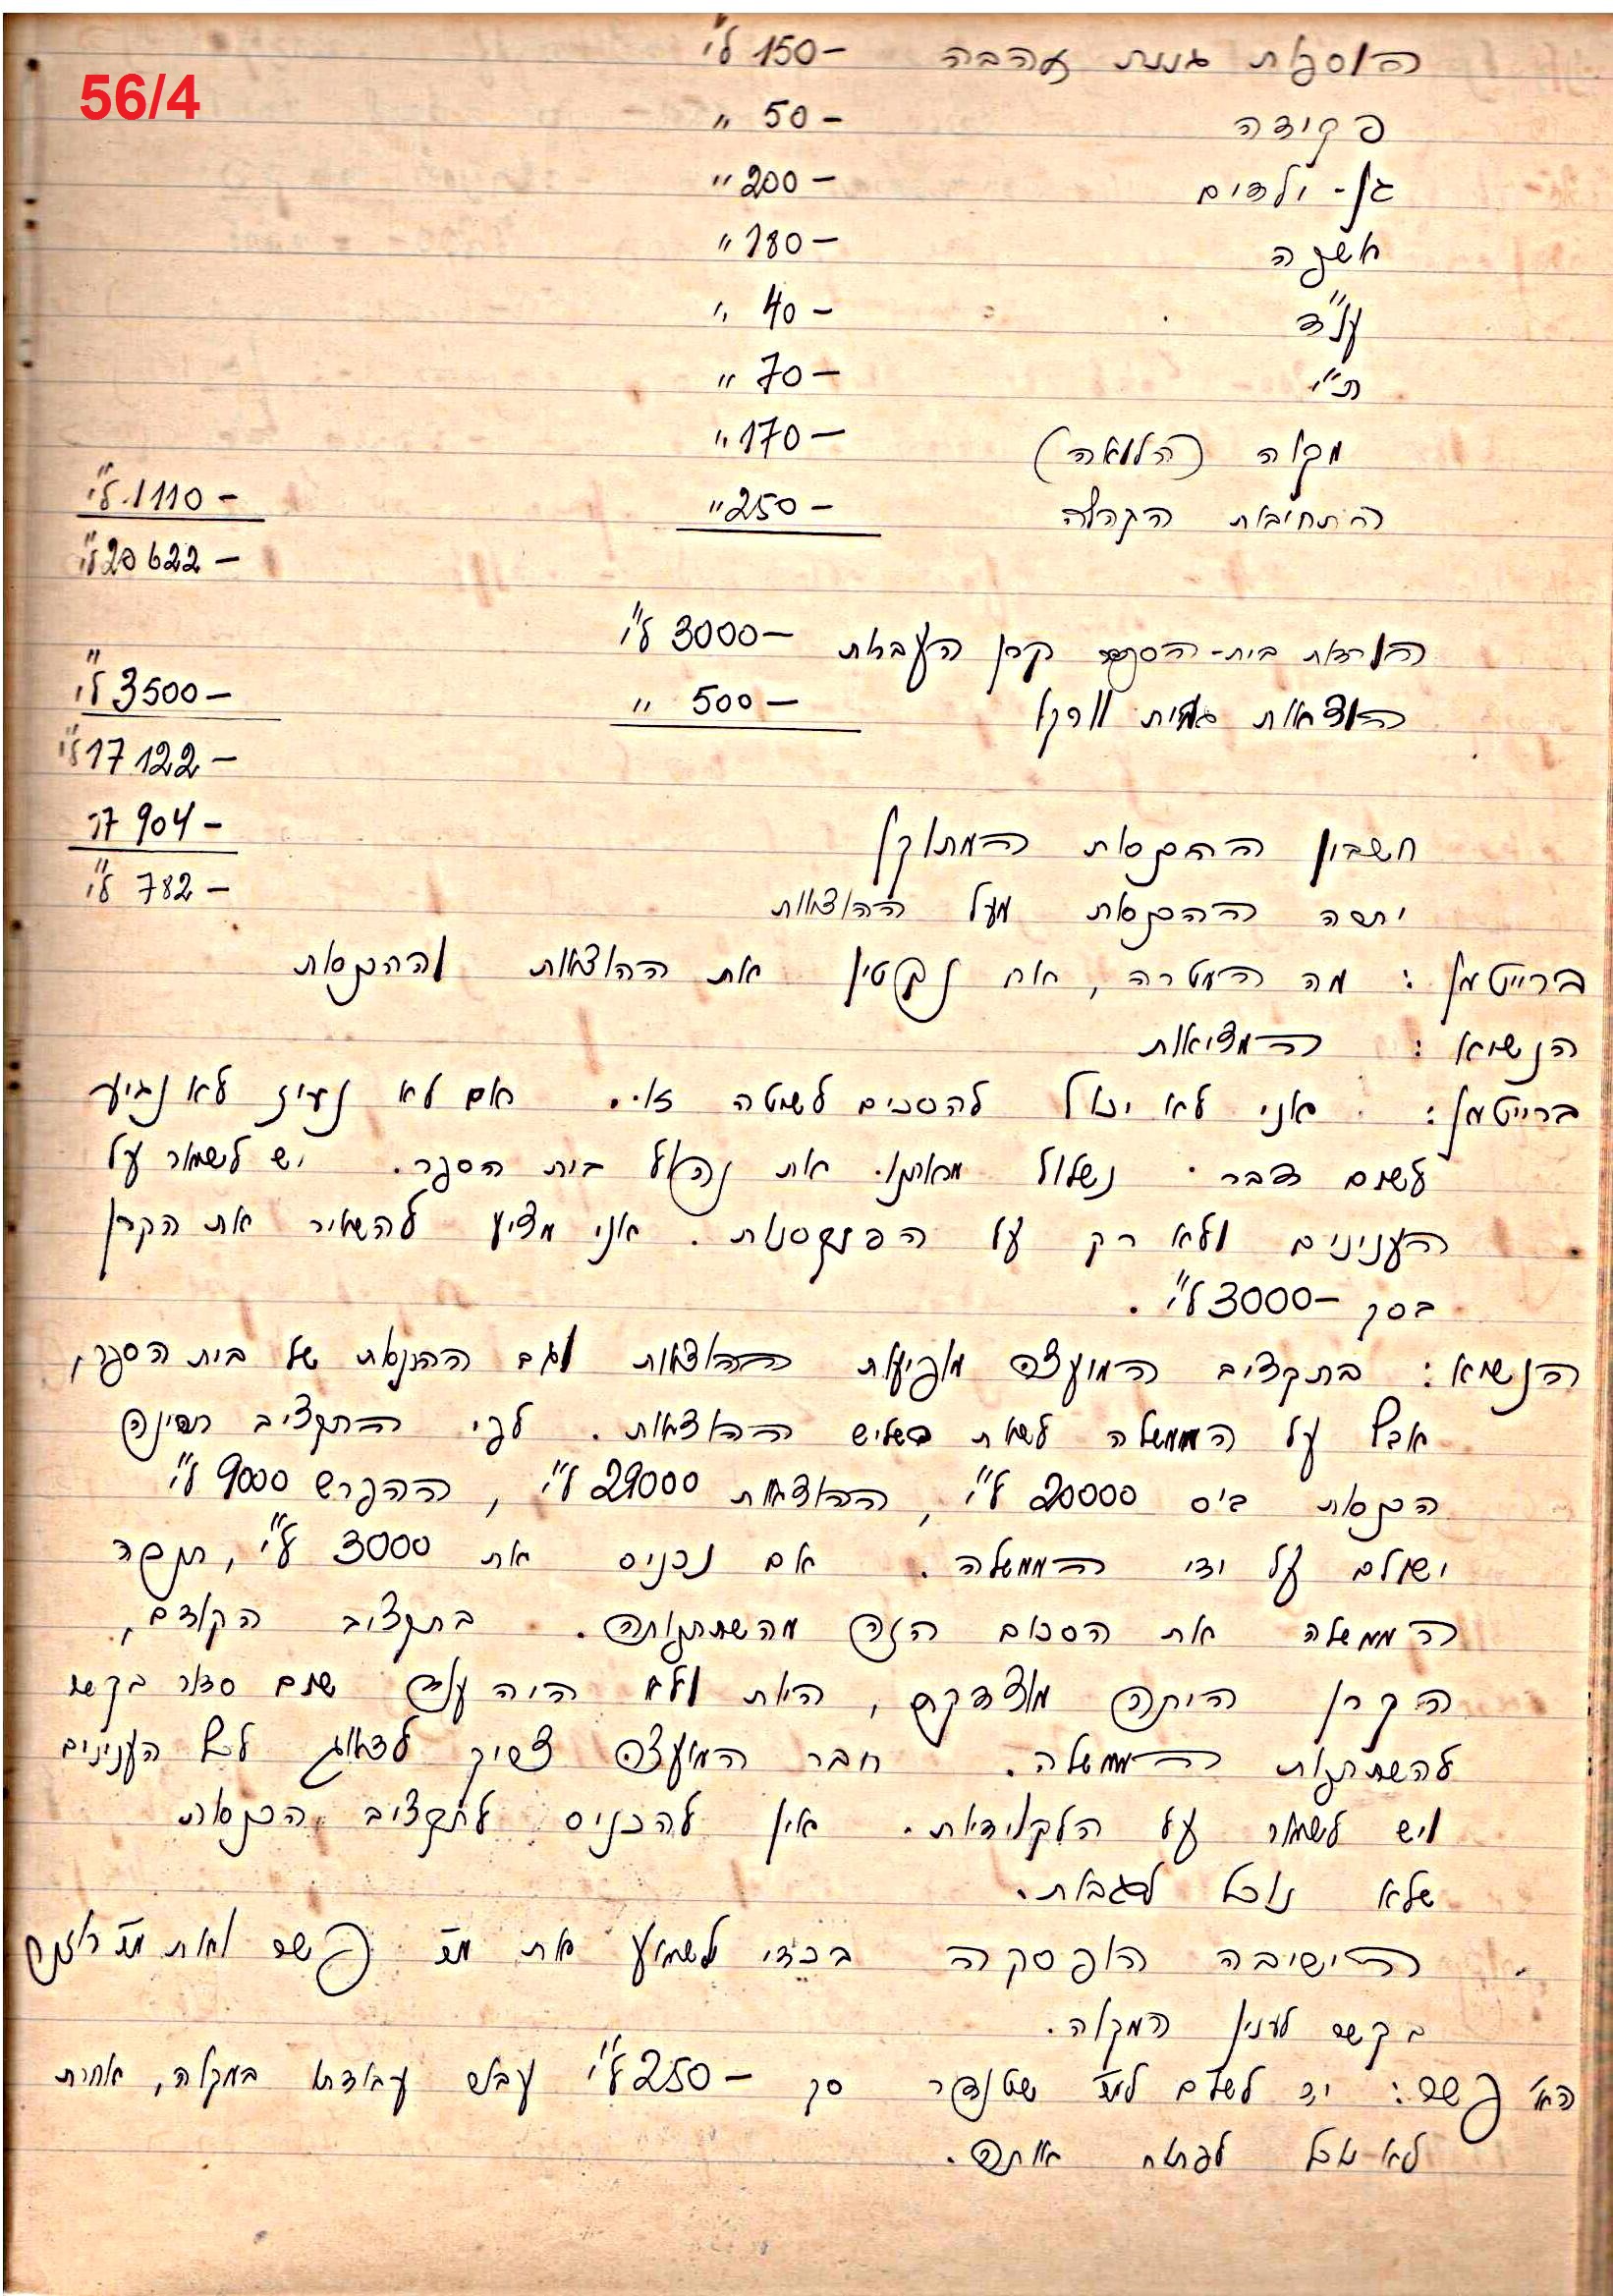 56/4
הוספות גננת אהבה 150- ל"י
פקידה 50- "
גן-ילדים 200- "
אשפה 180- "
40- "
ת"י 70- "
מקוה (הלואה) 170- "
התחיבות הקהלה 250- " 1110- ל"י
20622- ל"י
הורדת בית-הספר קרן העברת 3000- ל"י
הוצאות 500- " 3500- ל"י
17122- ל"י
חשבון ההכנסות המתוקן 17904-
יתרה ההכנסות מעל ההוצאות 782- ל"י
ברייטמן: מה המטרה, אם נקטין את ההוצאות וההכנסות
הנשיא: המציאות
ברייטמן: אני לא יכול להסכים לשיטה זו. אם לא נעיז לא נגיע
לשום דבר. נשלול מאתנו את נהול בית הספר. יש לשמור על
הענינים ולא רק על הפנקסנות. אני מציע להשאיר את הקרן
בסך 3000- ל"י.
הנשיא: בתקציב המועצה מופיעות ההוצאות וגם ההכנסות של בית הספר,
אבל על הממשלה לשאת בשליש ההוצאות. לפי התקציב
הכנסות ביס 20000 ל"י, ההוצאות 29000 ל"י, ההפרש 9000 ל"י
ישולם על ידי הממשלה. אם נכניס את 3000 ל"י, תנכה
הממשלה את הסכום הזה מהשתתפותה. בתקציב הקודם,
הקרן היתה מוצדקת, היות ולא היה עוד שום סדור בקשר
להשתתפות הממשלה. חבר המועצה צריך לדאוג לכל הענינים
ויש לשמור על הלקוידיות. אין להכניס לתקציב הכנסות
שלא נוכל לגבות.
הישיבה הופסקה בכדי לשמוע את מר פשס ואת מר
בקשר לענין המקוה.
הא' פשס: יש לשלם למר שטנדר סך 250- ל"י עבור עבודתו במקוה, אחרת
לא נוכל לפתוח אותה.